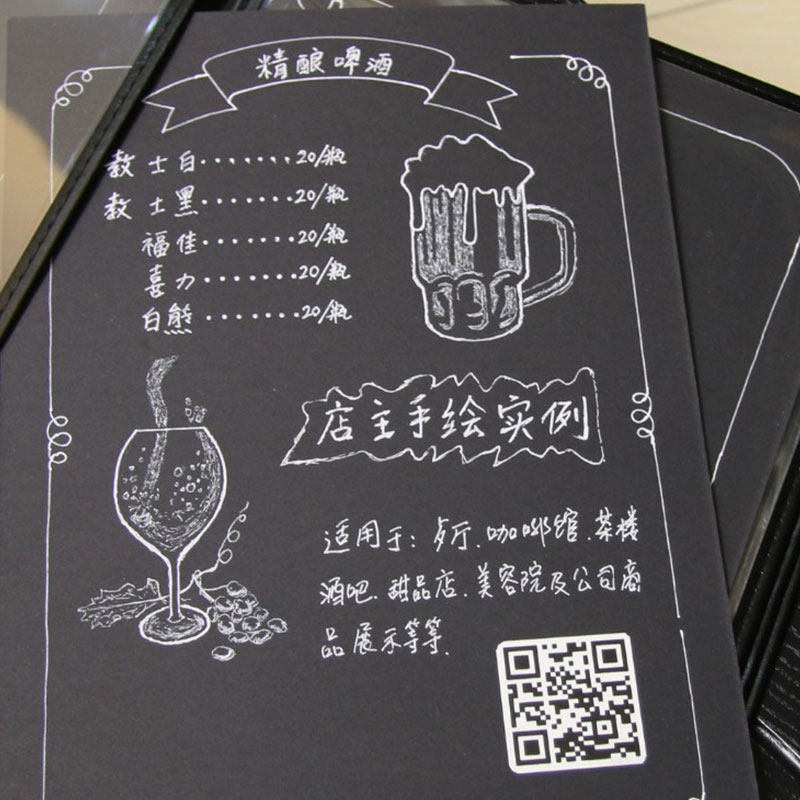 精酿啤酒
教士白·······20/瓶
教士黑·······20/瓶
福佳·······20/瓶
喜力·······20/瓶
白熊·······20/瓶
店主手绘实例
适用于：歺厅.咖啡馆.茶楼
酒吧.甜品店.美容院及公司商
品展示等等.